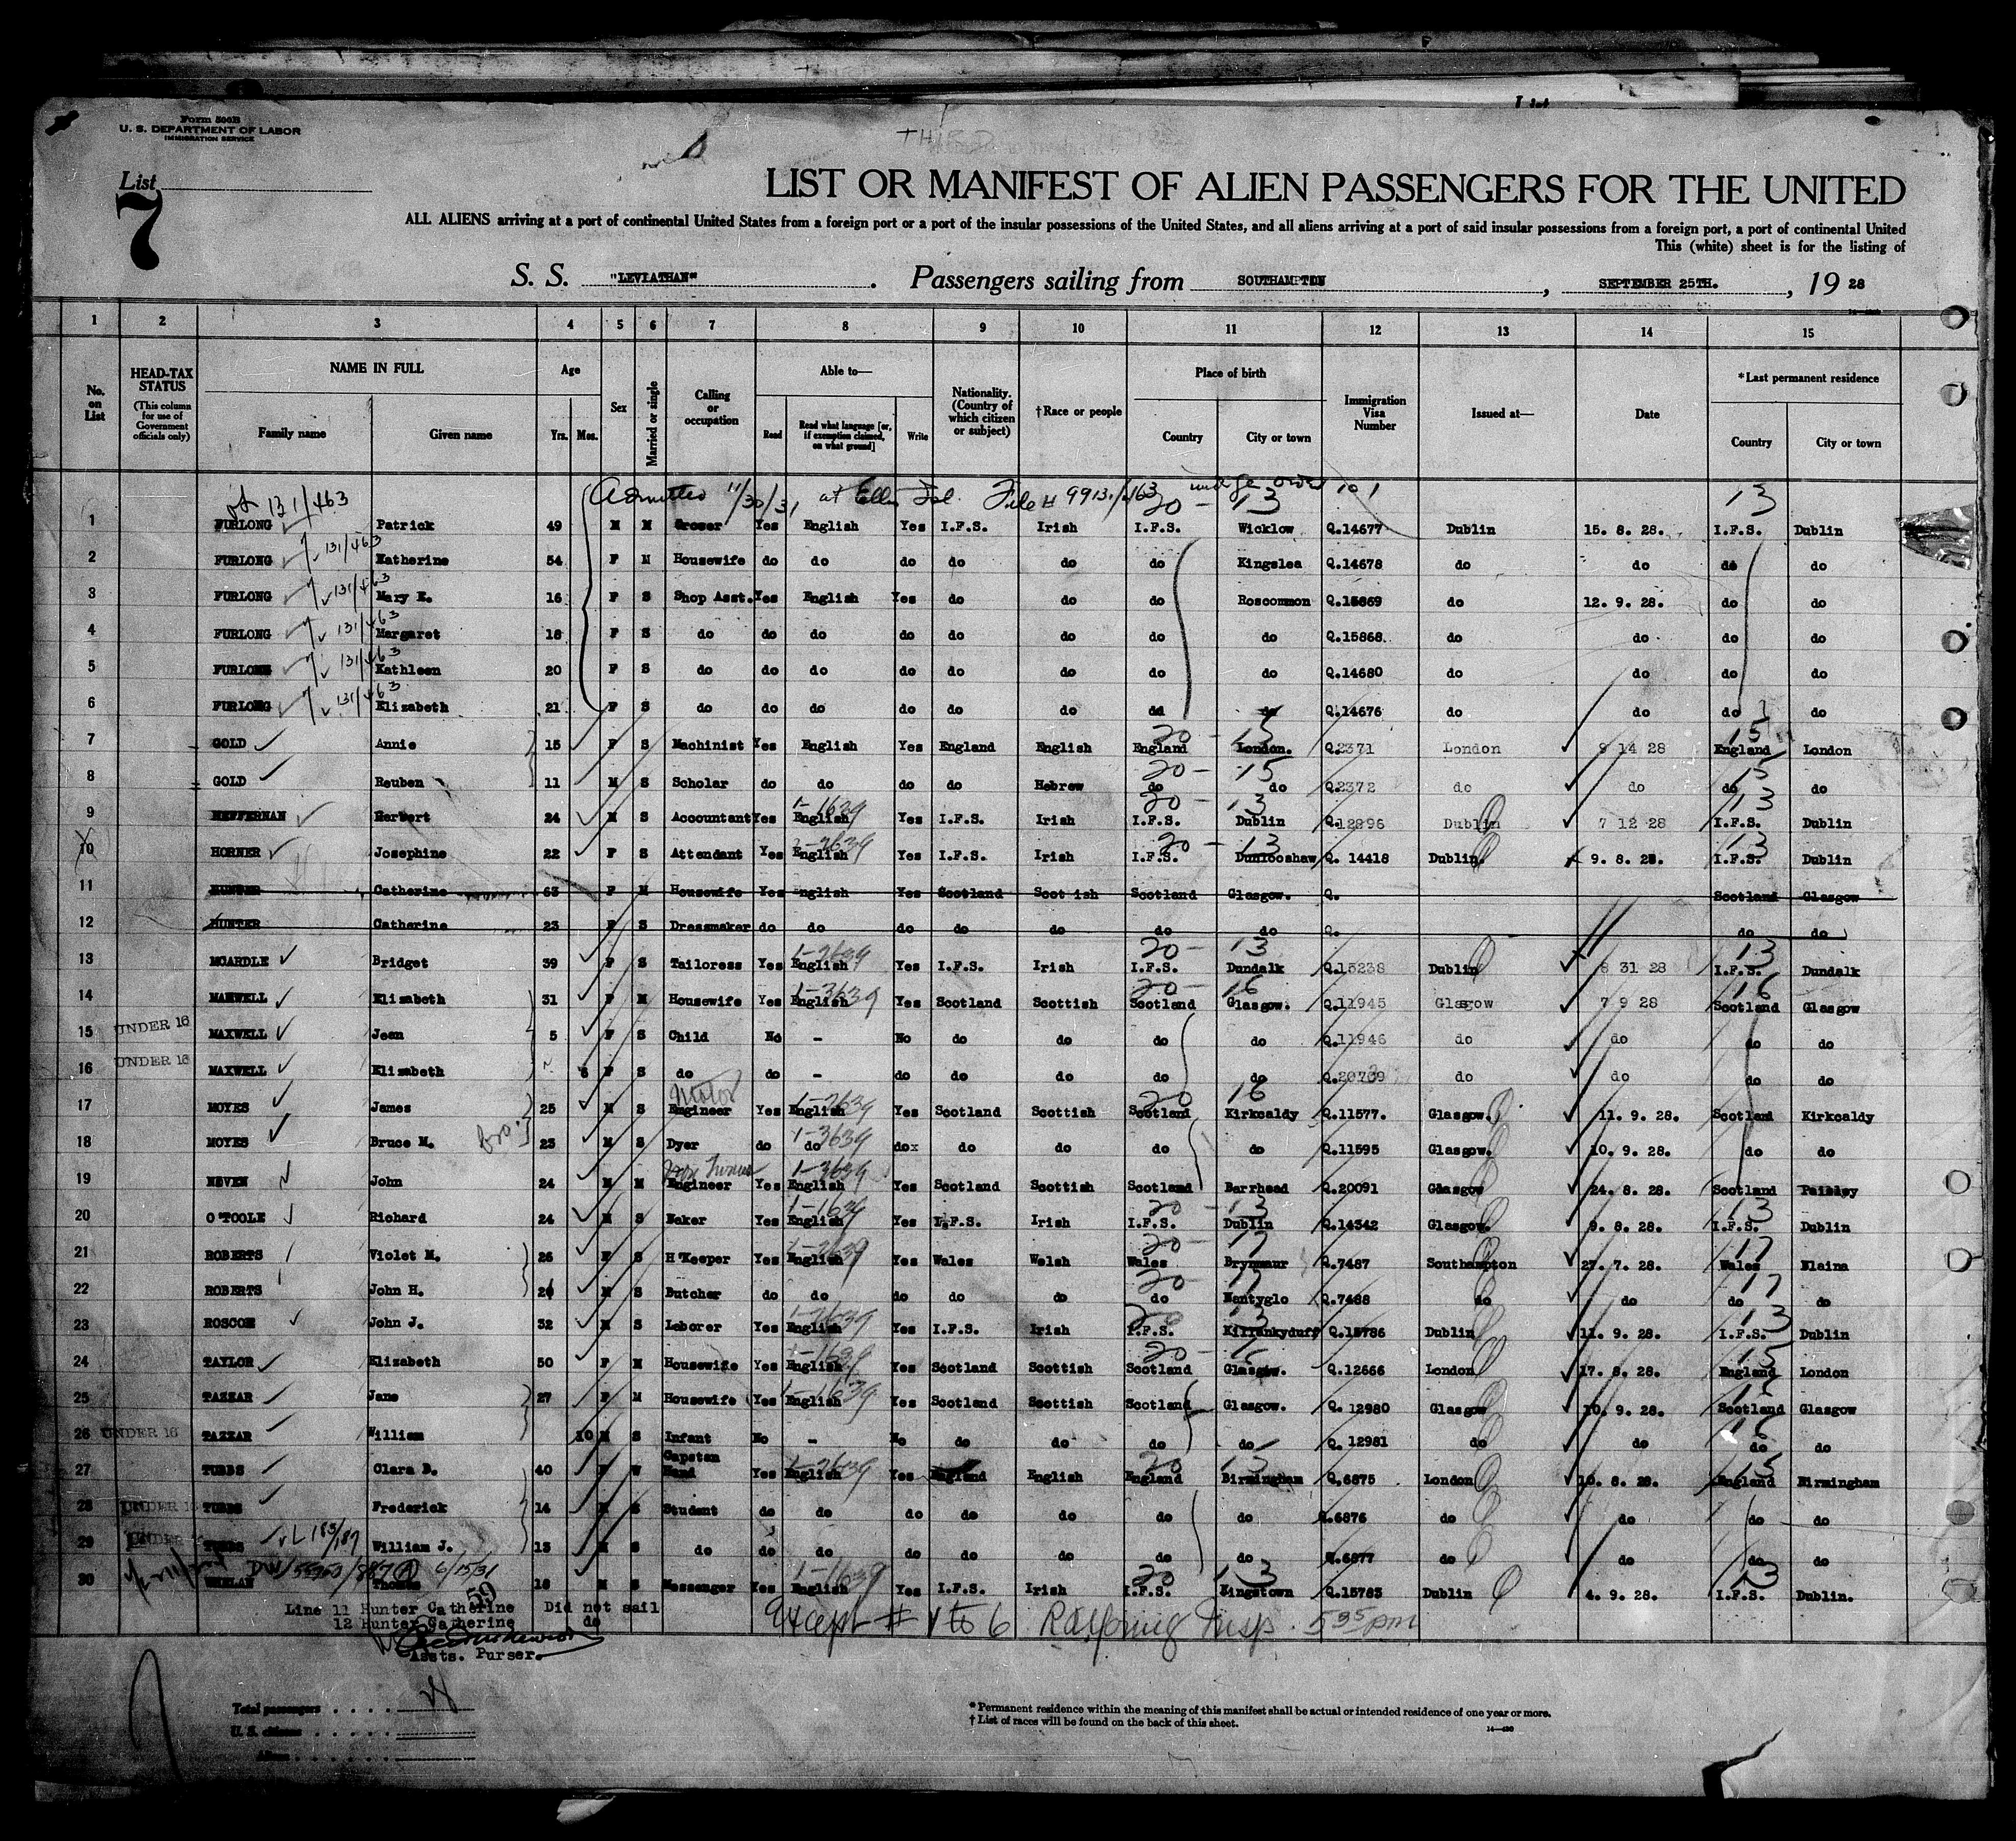 Form 500B
U. S. DEPARTMENT OF LABOR
IMMIGRATION SERVICE
THIRD
List
7
LIST OR MANIFEST OF ALIEN PASSENGERS FOR THE UNITED
ALL ALIENS arriving at a port of continental United States from a foreign port or a port of the insular possessions of the United States, and all aliens arriving at a port of said insular possessions from a foreign port, a port of continental United
This (white) sheet is for the listing of
S. S. "LEVIATHAN". Passengers sailing from SOUTHAMPTON, SEPTEMBER 25TH., 1928
1 2 3 4 5 6 7 8 9 10 11 12 13 14 15
No. on List
HEAD-TAX STATUS (This column for use of Government officials only)
NAME IN FULL Family name Given name
Age Yrs. Mos.
Sex
Married or single
Calling or occupation
Able to— Read Read what language [or, if exemption claimed, on what ground] Write
Nationality. (Country of which citizen or subject)
†Race or people
Place of birth Country City or town
Immigration Visa Number
Issued at—
Date
*Last permanent residence Country City or town
131/463 Admitted 11/30/31 at Ellis Isl. File # 99131/463 20 - 13 13
1 FURLONG Patrick 49 M M Grocer Yes English Yes I.F.S. Irish I.F.S. Wicklow Q.14677 Dublin 15. 8. 28. I.F.S. Dublin
2 FURLONG 131/463 Katherine 54 F M Housewife do do do do do do Kingslea Q.14678 do do do do
3 FURLONG 131/463 Mary E. 16 F S Shop Asst. Yes English Yes do do do Roscommon Q.15869 do 12. 9. 28. do do
4 FURLONG 131/463 Margaret 18 F S do do do do do do do do Q.15868. do do do do
5 FURLONG 131/463 Kathleen 20 F S do do do do do do do do Q.14680 do do do do
6 FURLONG 131/463 Elizabeth 21 F S do do do do do do do do Q.14676 do do do do
7 GOLD Annie 15 F S Machinist Yes English Yes England English England 20 - 15 London. Q.2371 London 9 14 28 England 15 London
8 GOLD Reuben 11 M S Scholar do do do do Hebrew do 20 - 15 do Q.2372 do do do 15 do
9 HEFFERNAN Herbert 24 M S Accountant Yes English 1-1639 Yes I.F.S. Irish I.F.S. 20 - 13 Dublin Q.12896 Dublin 7 12 28 I.F.S. 13 Dublin
10 HORNER Josephine 22 F S Attendant Yes English Yes I.F.S. Irish I.F.S. 20 - 13 Dunlooshaw Q. 14418 Dublin 9. 8. 28. I.F.S. 13 Dublin
11 HUNTER Catherine 63 F M Housewife Yes English Yes Scotland Scottish Scotland Glasgow. Q. Scotland Glasgow
12 HUNTER Catherine 23 F S Dressmaker do do do do do do do Q. do do
13 MCARDLE Bridget 39 F S Tailoress Yes English Yes I.F.S. Irish I.F.S. 20 - 13 Dundalk Q.15238 Dublin 8 31 28 I.F.S. 13 Dundalk
14 MAXWELL Elizabeth 31 F M Housewife Yes English 1-3639 Yes Scotland Scottish Scotland 20 - 16 Glasgow. Q.11945 Glasgow 7 9 28 Scotland 16 Glasgow
15 UNDER 16 MAXWELL Jean 5 F S Child No - No do do do do Q.11946 do do do do
16 UNDER 16 MAXWELL Elizabeth F S do do - do do do do do Q.20709 do do do do
17 MOYES James 25 M S Motor Engineer Yes English Yes Scotland Scottish Scotland 20 16 Kirkcaldy Q.11577. Glasgow. 11. 9. 28. Scotland Kirkcaldy
18 MOYES Bruce M. bro. 23 M S Dyer do do 1-3639 dox do do do do Q.11595 Glasgow. 10. 9. 28. do do
19 NEVEN John 24 M M Engineer Yes English 1-3639 Yes Scotland Scottish Scotland Barrhead Q.20091 Glasgow 24. 8. 28. Scotland Paisley
20 O'TOOLE Richard 24 M S Baker Yes English 1-1639 Yes I.F.S. Irish I.F.S. 20 - 13 Dublin Q.14342 Glasgow. 9. 8. 28. I.F.S. 13 Dublin
21 ROBERTS Violet M. 26 F S H'Keeper Yes English Yes Wales Welsh Wales 20 - 17 Brynmaur Q.7487 Southampton 27. 7. 28. Wales 17 Blaina
22 ROBERTS John H. M S Butcher do do do do do do 20 17 Nantyglo Q.7488 do do do 17 do
23 ROSCOE John J. 32 M S Laborer Yes English Yes I.F.S. Irish I.F.S. 20 13 Killenkyduff Q.15786 Dublin 11. 9. 28. I.F.S. 13 Dublin
24 TAYLOR Elizabeth 50 F M Housewife Yes English Yes Scotland Scottish Scotland 20 - 16 Glasgow. Q.12666 London 17. 8. 28. England 15 London
25 TAZZAR Jane 27 F M Housewife Yes English 1-1639 Yes Scotland Scottish Scotland Glasgow. Q. 12980 Glasgow 10. 9. 28. Scotland 16 Glasgow
26 UNDER 16 TAZZAR William 10 M S Infant No - No do do do do Q. 12981 do do do 16 do
27 TUBBS Clara B. 40 F W Capstan Hand Yes English Yes England English England 20 15 Birmingham Q.6875 London 10. 8. 28. England 15 Birmingham
28 UNDER 16 TUBBS Frederick 14 M S Student do do do do do do do Q.6876 do do do do
29 UNDER 16 TUBBS William J. 13 M S do do do do do do do do Q.6877 do do do do
30 WHELAN Thomas 18 M S Messenger Yes English 1-1639 Yes I.F.S. Irish I.F.S. 20 13 Kingstown Q.15783 Dublin 4. 9. 28. I.F.S. 13 Dublin.
6/15/31
59
Line 11 Hunter Catherine Did not sail
12 Hunter Catherine do
Except # 1 to 6 Insp. 5 35 pm
Assts. Purser.
Total passengers
U. S. citizens
Aliens
*Permanent residence within the meaning of this manifest shall be actual or intended residence of one year or more.
†List of races will be found on the back of this sheet.
14—430